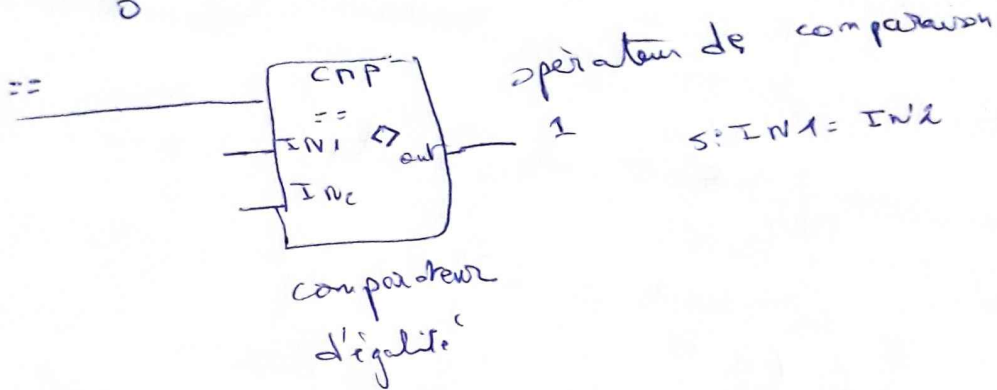 ==
CMP
==
IN1 <> out
IN2
opérateur de comparaison
1
si IN1 = IN2
comparateur
d'égalité